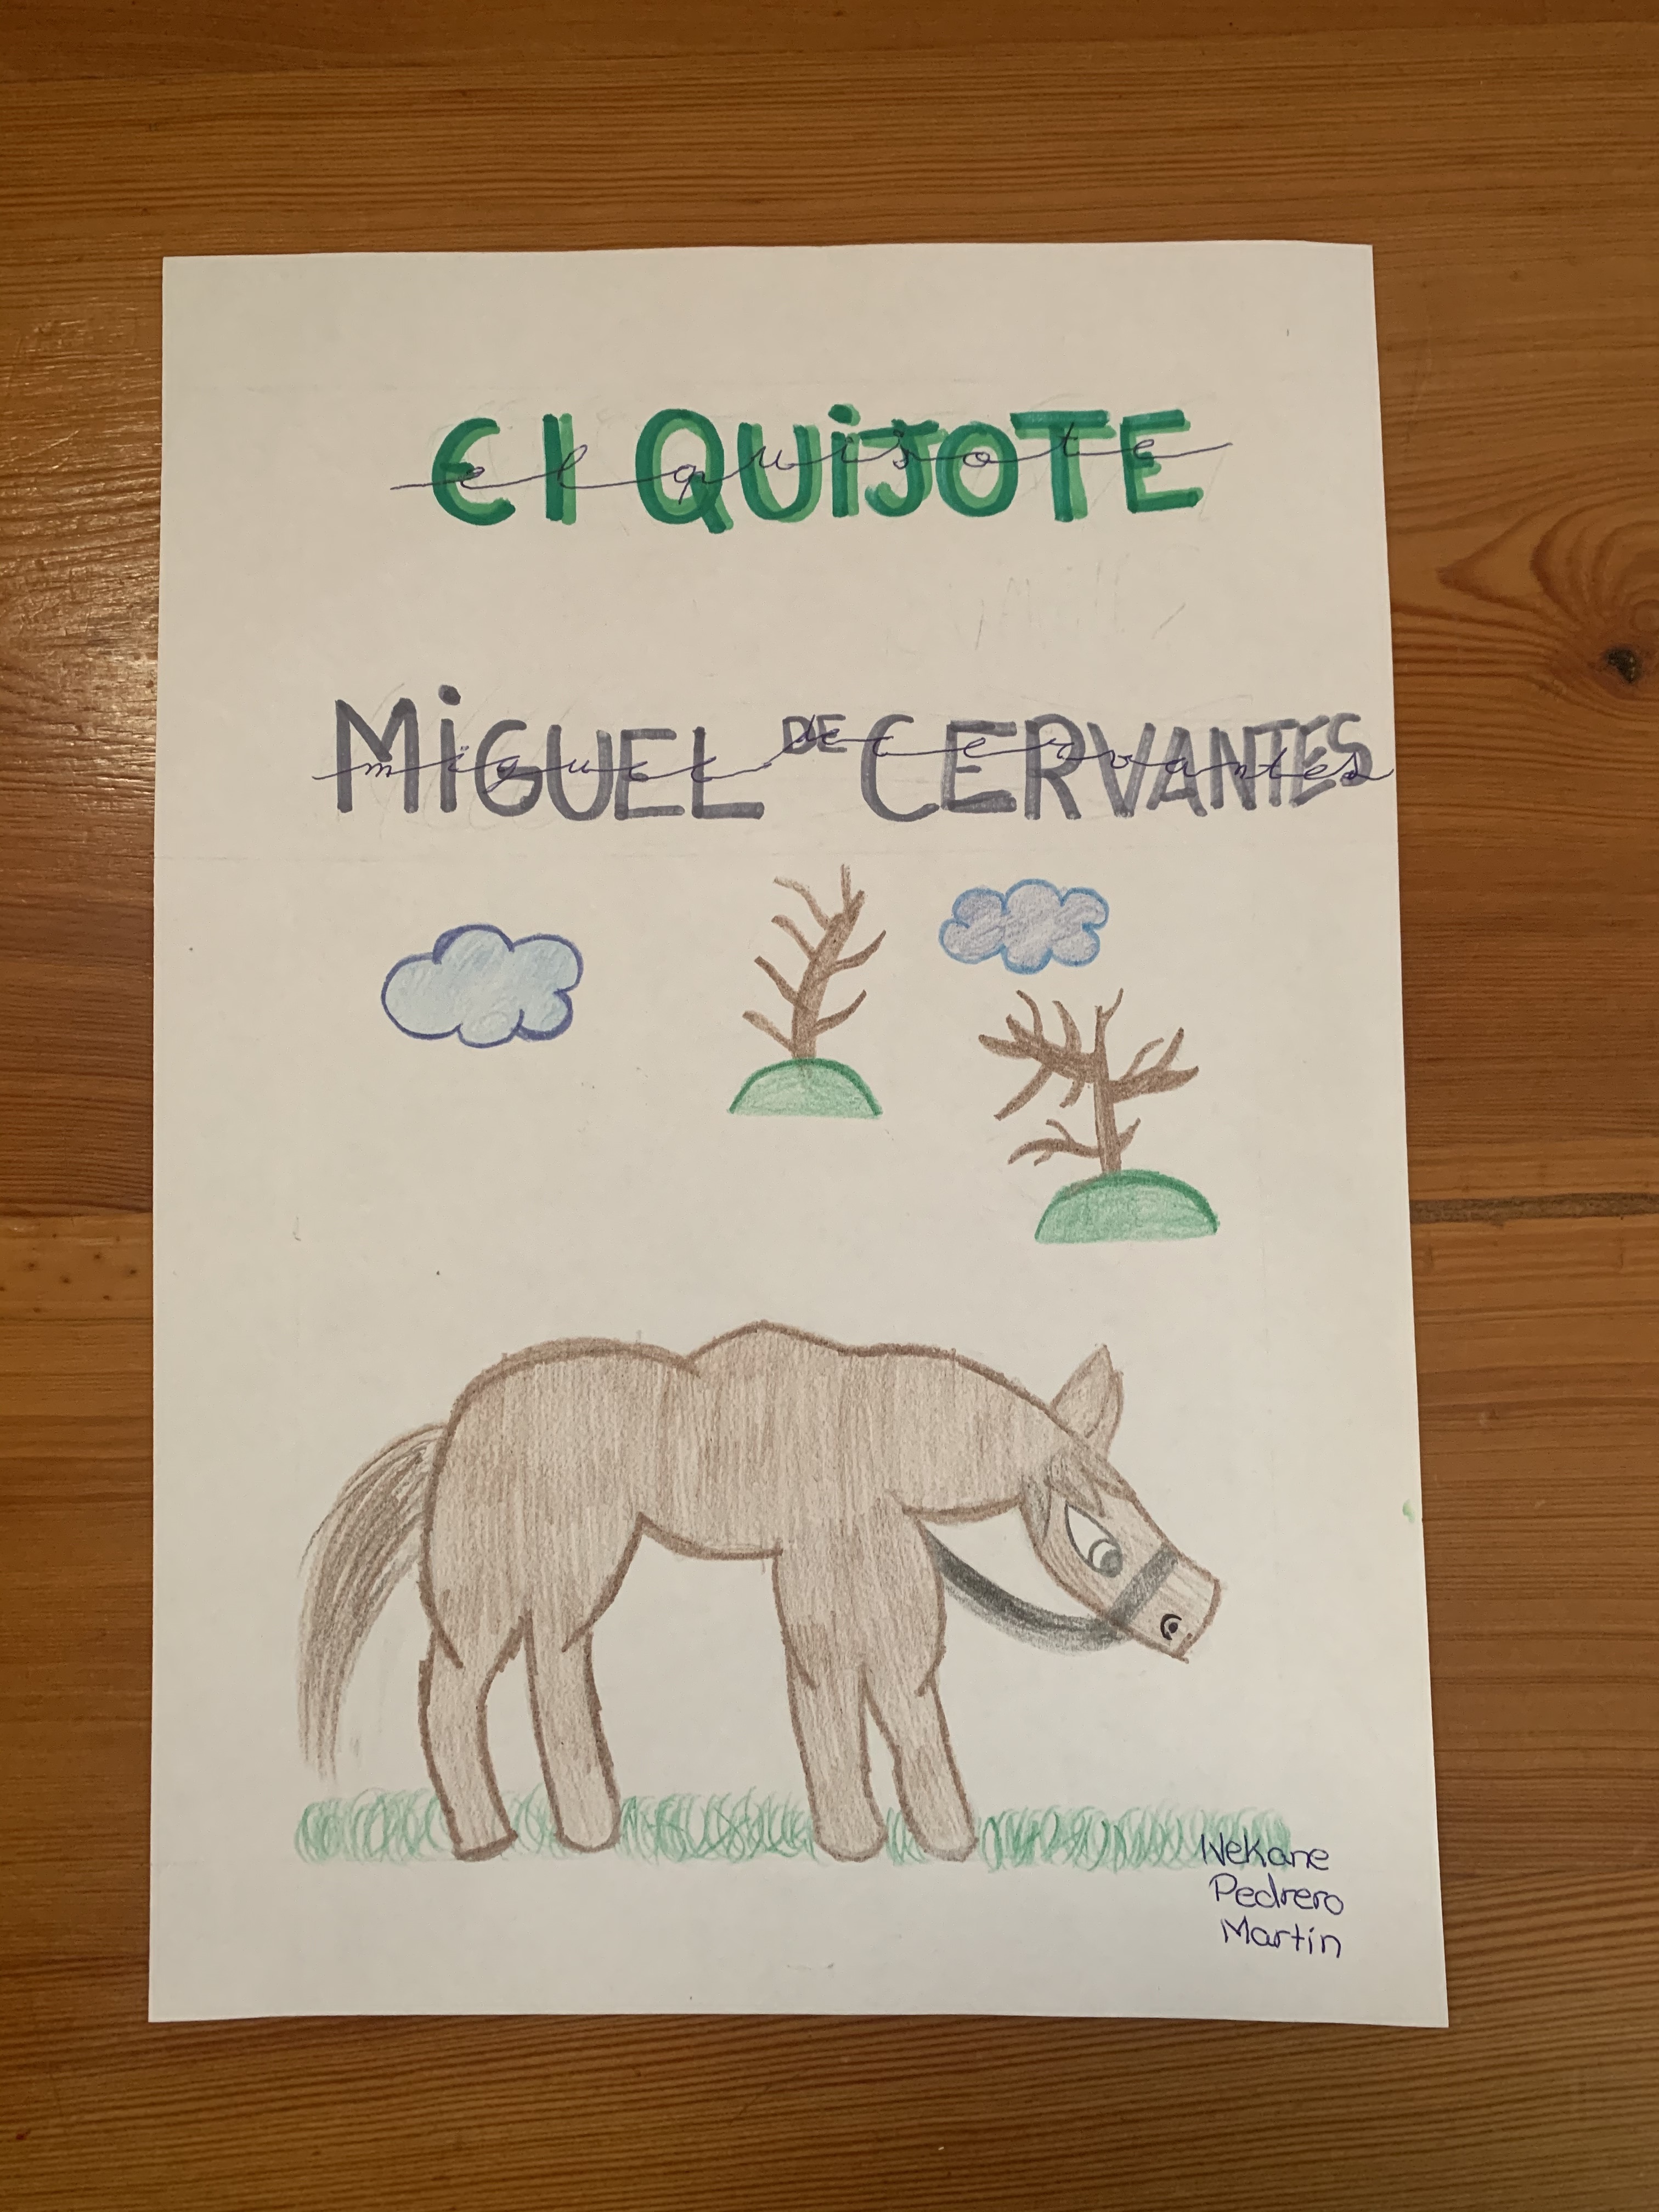 El QUiJOTE
el quijote
MiGUEL DE CERVANTES
miguel de cervantes
Nekane
Pedrero
Martín